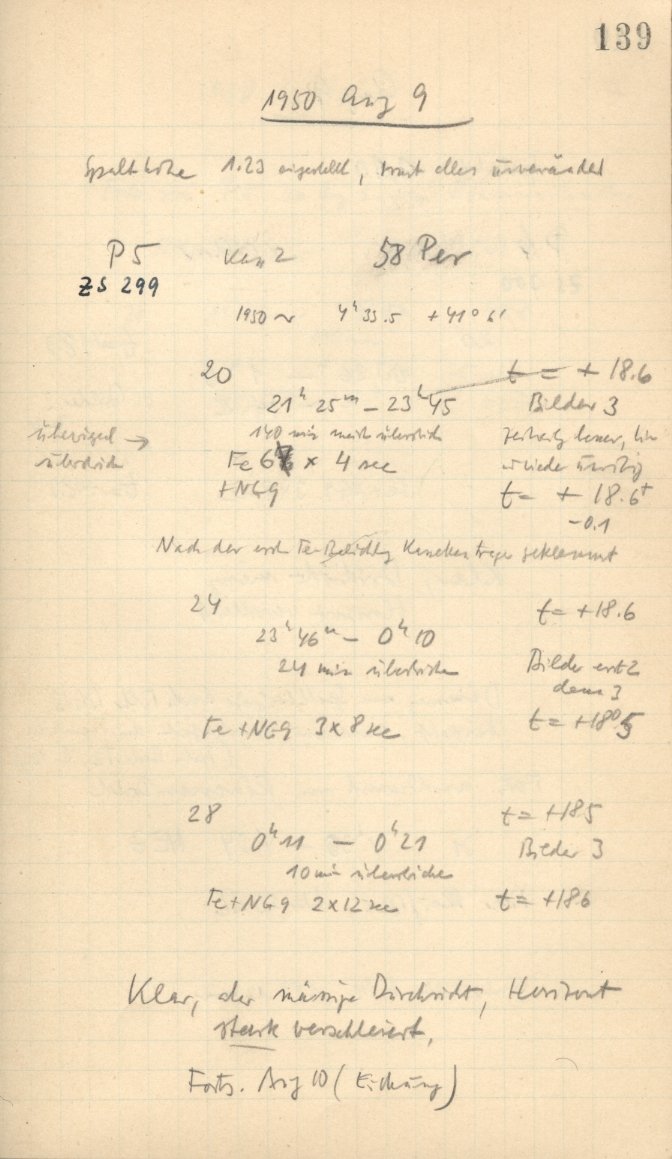 139
1950 Aug 9
Spalthöhe 1.23 eingestellt, sonst alles unverändert
P5 Kam 2 58 Per
ZS 299
1950 ~ 4h 33.5 +41° 6'
20 t = + 18.6
21h 25m – 23h 45 Bilder 3
140 min überstrichen
überwiegend →
überstrichen
Fe 6 x 4 sec wieder unruhig
+NG9 t = + 18.6
-0.1
Nach der ersten Fe-Belichtung geklemmt
24 t = +18.6
23h 46m – 0h 10
24 min überstrichen Bilder erst 2
dann 3
Fe + NG9 3 x 8 sec t = +18°5
28 t = +18.5
0h 11 – 0h 21 Bilder 3
10 min überstrichen
Fe + NG9 2 x 12 sec t = +18.6
Klar, aber mässige Durchsicht, Horizont
stark verschleiert.
Forts. Aug 10 (Eichung)